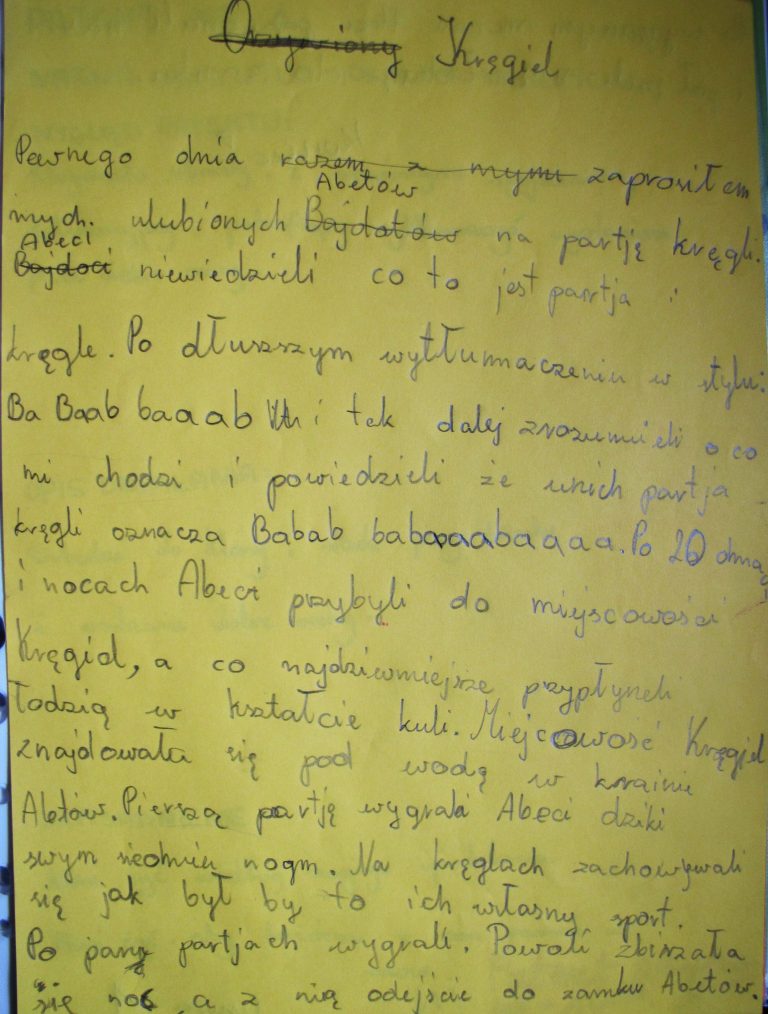 Ożywiony Kręgiel
Pewnego dnia razem z mymi zaprosiłem
Abetów
mych. ulubionych Bajdotów na partję kręgli.
Abeci
Bajdoci niewiedzieli co to jest partja i
kręgle. Po dłuszszym wytłumaczeniu w stylu:
Ba Baab baaab i tak dalej zrozumieli o co
mi chodzi i powiedzieli że unich partja
kręgli oznacza Babab babaaaabaaaa. Po 20 dniach
i nocach Abeci przybyli do miejscowości
Kręgiel, a co najdziwniejsze przypłyneli
łodzią w kształcie kuli. Miejcowość Kręgiel
znajdowała się pod wodą w krainie
Abetów. Pierszą partję wygrali Abeci dziki
swym siedmiu nogm. Na kręglach zachowywali
się jak był by to ich własny sport.
Po parę partjach wygrali. Powoli zbirzała
się noc a z nią odejście do zamku Abetów.